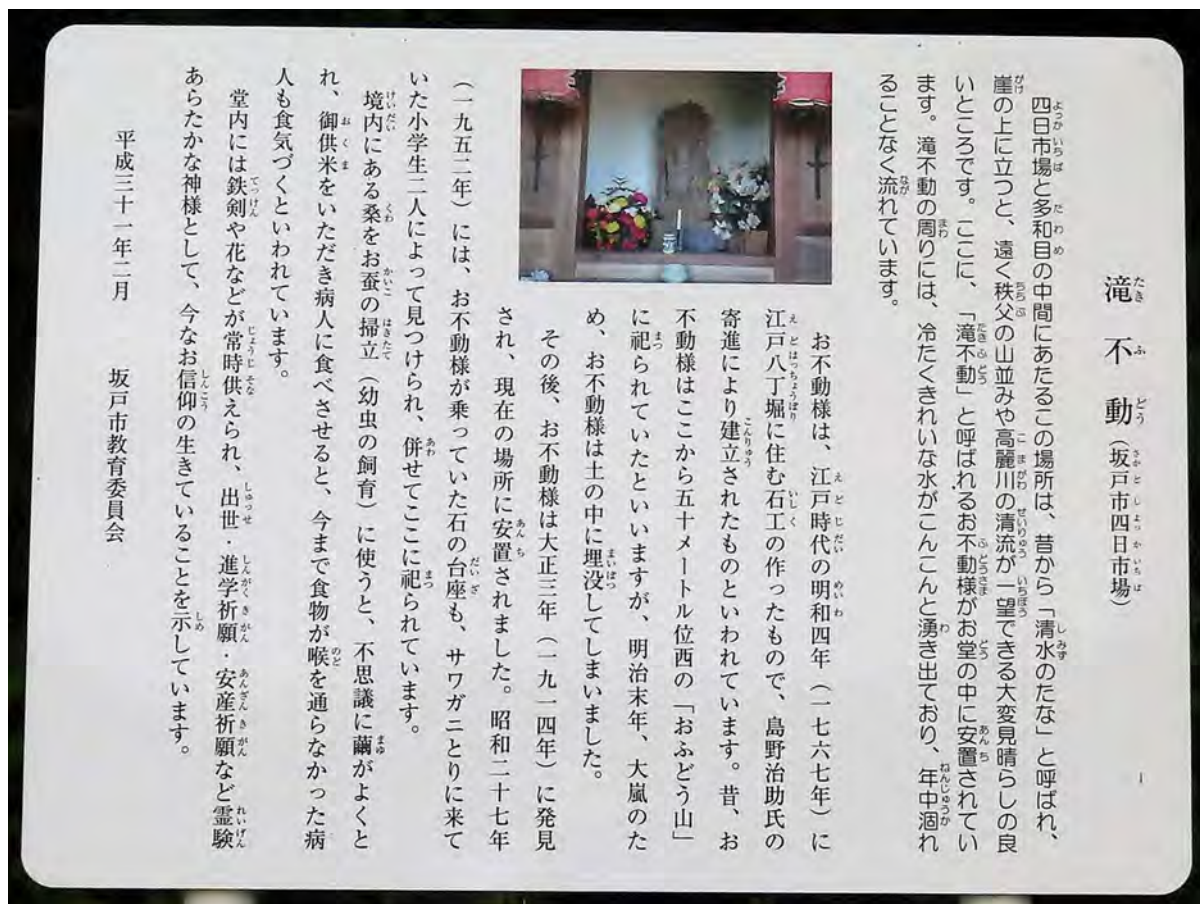 滝不動(坂戸市四日市場)
四日市場と多和目の中間にあたるこの場所は、昔から「清水のたな」と呼ばれ、
崖の上に立つと、遠く秩父の山並みや高麗川の清流が一望できる大変見晴らしの良
いところです。ここに、「滝不動」と呼ばれるお不動様がお堂の中に安置されてい
ます。滝不動の周りには、冷たくきれいな水がこんこんと湧き出ており、年中涸れ
ることなく流れています。
お不動様は、江戸時代の明和四年(一七六七年)に
江戸八丁堀に住む石工の作ったもので、島野治助氏の
寄進により建立されたものといわれています。昔、お
不動様はここから五十メートル位西の「おふどう山」
に祀られていたといいますが、明治末年、大嵐のた
め、お不動様は土の中に埋没してしまいました。
その後、お不動様は大正三年(一九一四年)に発見
され、現在の場所に安置されました。昭和二十七年
(一九五二年)には、お不動様が乗っていた石の台座も、サワガニとりに来て
いた小学生二人によって見つけられ、併せてここに祀られています。
境内にある桑をお蚕の掃立(幼虫の飼育)に使うと、不思議に繭がよくと
れ、御供米をいただき病人に食べさせると、今まで食物が喉を通らなかった病
人も食気づくといわれています。
堂内には鉄剣や花などが常時供えられ、出世・進学祈願・安産祈願など霊験
あらたかな神様として、今なお信仰の生きていることを示しています。
平成三十一年二月 坂戸市教育委員会